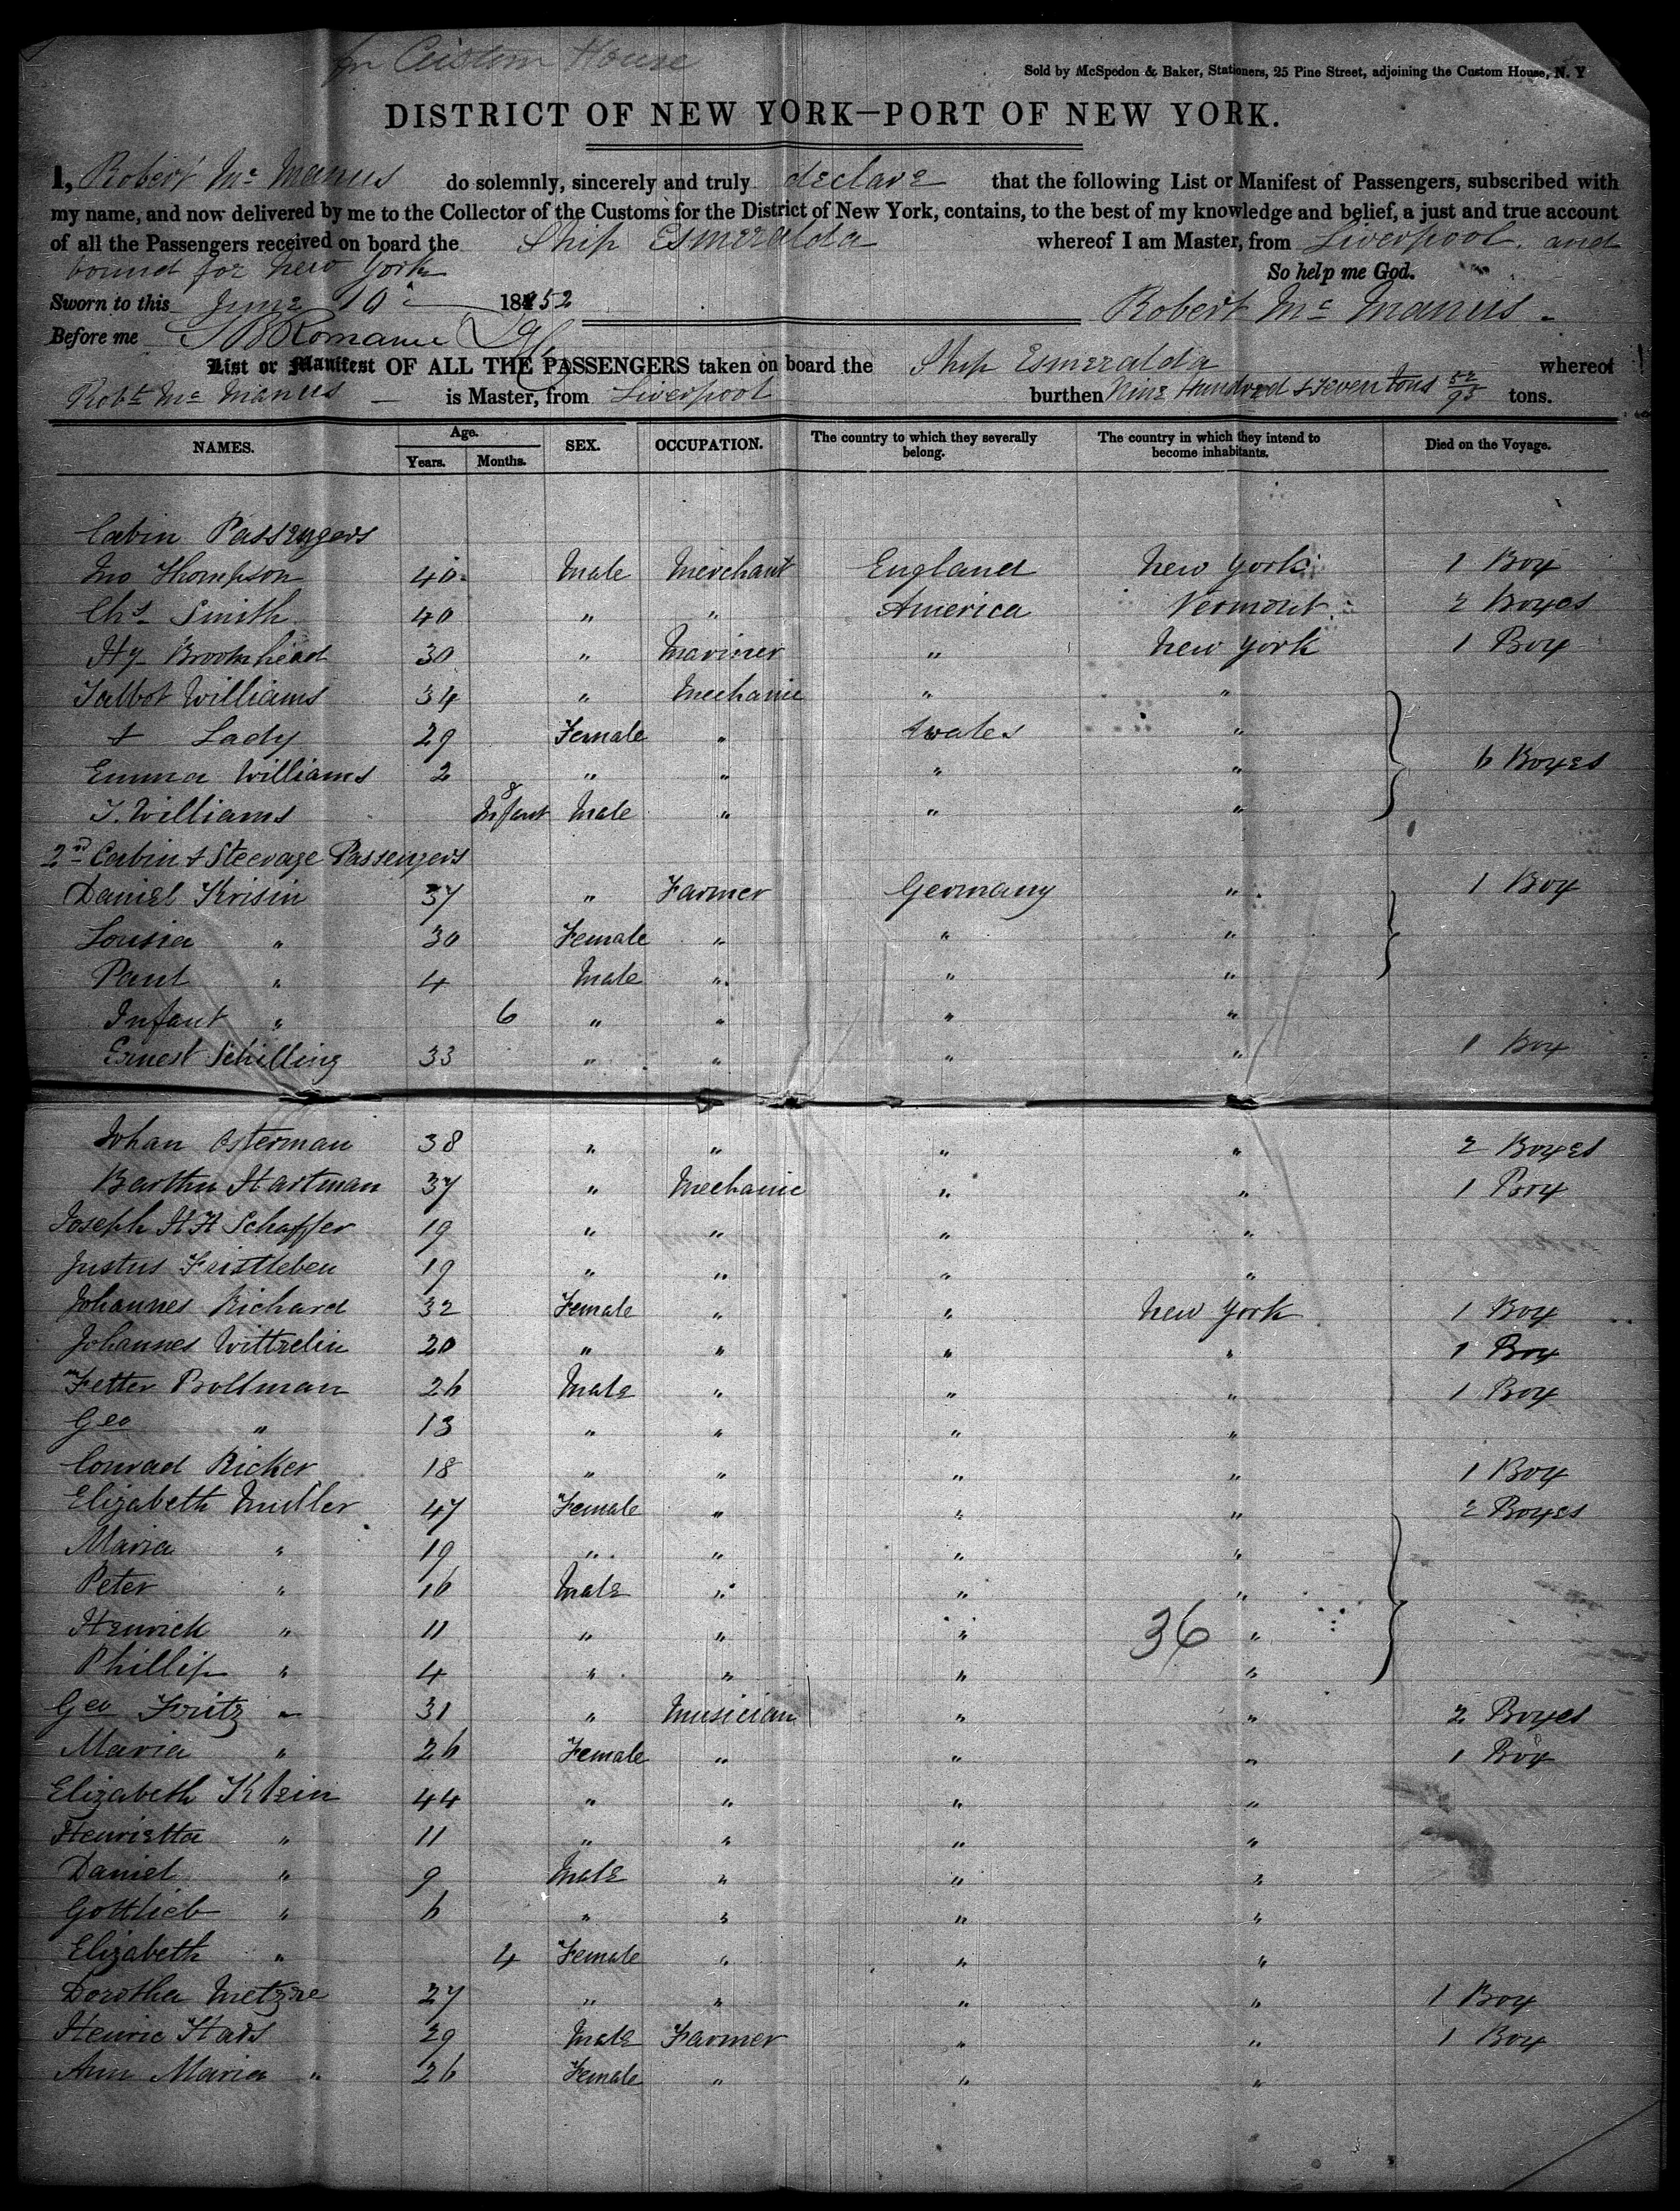 for Custom House
Sold by McSpedon & Baker, Stationers, 25 Pine Street, adjoining the Custom House, N. Y
DISTRICT OF NEW YORK—PORT OF NEW YORK.
I, Robert Mc Manus do solemnly, sincerely and truly declare that the following List or Manifest of Passengers, subscribed with
my name, and now delivered by me to the Collector of the Customs for the District of New York, contains, to the best of my knowledge and belief, a just and true account
of all the Passengers received on board the Ship Esmeralda whereof I am Master, from Liverpool and
bound for New York
So help me God.
Sworn to this June 10 1852
Robert Mc Manus
Before me
List or Manifest OF ALL THE PASSENGERS taken on board the Ship Esmeralda whereof
Robt Mc Manus is Master, from Liverpool burthen Nine Hundred & seven tons 52/95 tons.
NAMES. Age. Years. Months. SEX. OCCUPATION. The country to which they severally belong. The country in which they intend to become inhabitants. Died on the Voyage.
Cabin Passengers
Jno Thompson 40 Male Merchant England New York 1 Box
Chs Smith 40 " " America Vermont 2 Boxes
Hy Brookhead 30 " Mariner " New York 1 Box
Talbot Williams 34 " Mechanic " "
& Lady 29 Female " Wales "
Emma Williams 2 " " " " 6 Boxes
T. Williams 8 Infant Male " " "
2nd Cabin & Steerage Passengers
Daniel Krisin 37 " Farmer Germany " 1 Box
Lousia " 30 Female " " "
Paul " 4 Male " " "
Infant " 6 " " " "
Ernest Schilling 33 " " " " 1 Box
Johan Osterman 38 " " " " 2 Boxes
Barthu Hartman 37 " Mechanic " " 1 Box
Joseph H H Schaffer 19 " " " "
Justus 19 " " " "
Johannes Richard 32 Female " " New York 1 Box
Johannes Wittzelin 20 " " " " 1 Box
Fetter Bollman 26 Male " " " 1 Box
Geo " 13 " " " "
Conrad Ricker 18 " " " " 1 Box
Elizabeth Muller 47 Female " " " 2 Boxes
Maria " 19 " " " "
Peter " 16 Male " " "
Henrick " 11 " " " 36 "
Phillip " 4 " " " "
Geo Fritz 31 " Musician " " 2 Boxes
Maria " 26 Female " " " 1 Box
Elizabeth Klein 44 " " " "
Henrietta " 11 " " " "
Daniel " 9 Male " " "
Gottlieb " 6 " " " "
Elizabeth " 4 Female " " "
Dorothea Metzne 27 " " " " 1 Box
Henric 29 Male Farmer " " 1 Box
Ann Maria " 26 Female " " "